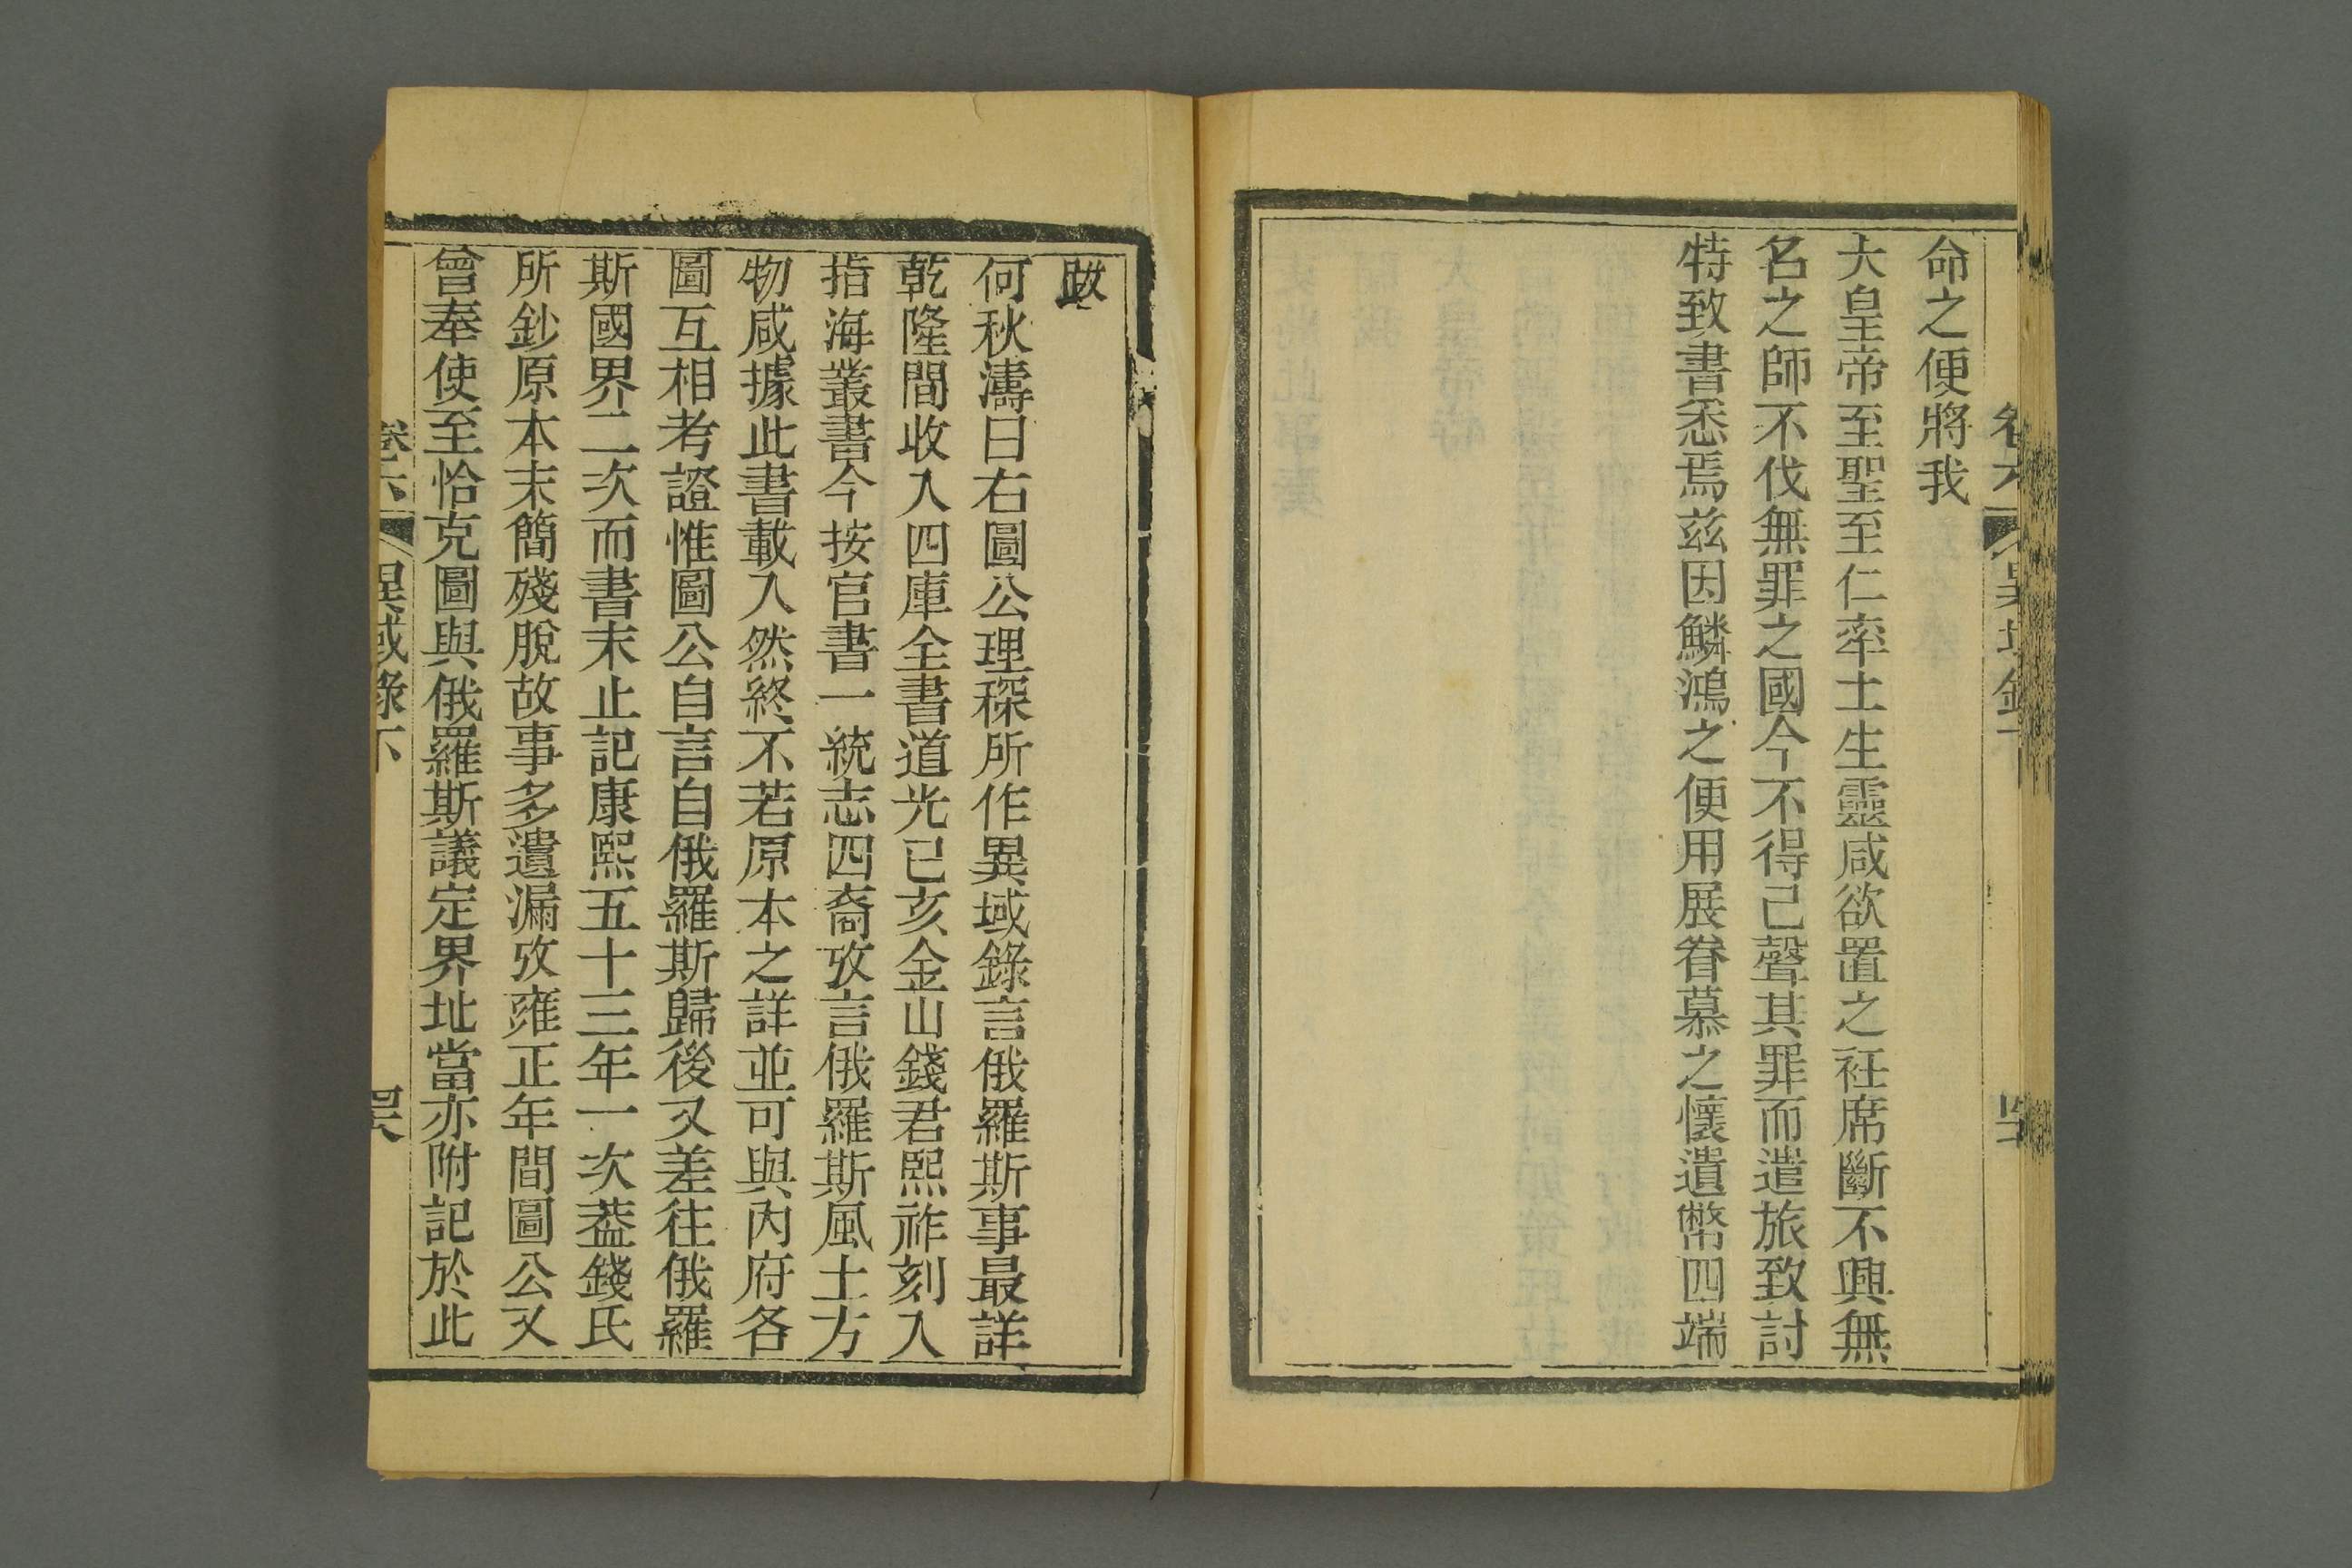 命之便將我
大皇帝至聖至仁率土生靈咸欲置之衽席斷不興無
名之師不伐無罪之國今不得已聲其罪而遣旅致討
特致書悉焉兹因鱗鴻之便用展眷慕之懷遺幣四端
跋
何秋濤曰右圖公理琛所作異域錄言俄羅斯事最詳
乾隆間收入四庫全書道光己亥金山錢君熙祚刻入
指海叢書今按官書一統志四裔攷言俄羅斯風土方
物咸據此書載入然終不若原本之詳並可與內府各
圖互相考證惟圖公自言自俄羅斯歸後又差往俄羅
斯國界二次而書末止記康熙五十三年一次葢錢氏
所鈔原本末簡殘脫故事多遺漏攷雍正年間圖公又
曾奉使至恰克圖與俄羅斯議定界址當亦附記於此
卷六 異域錄下